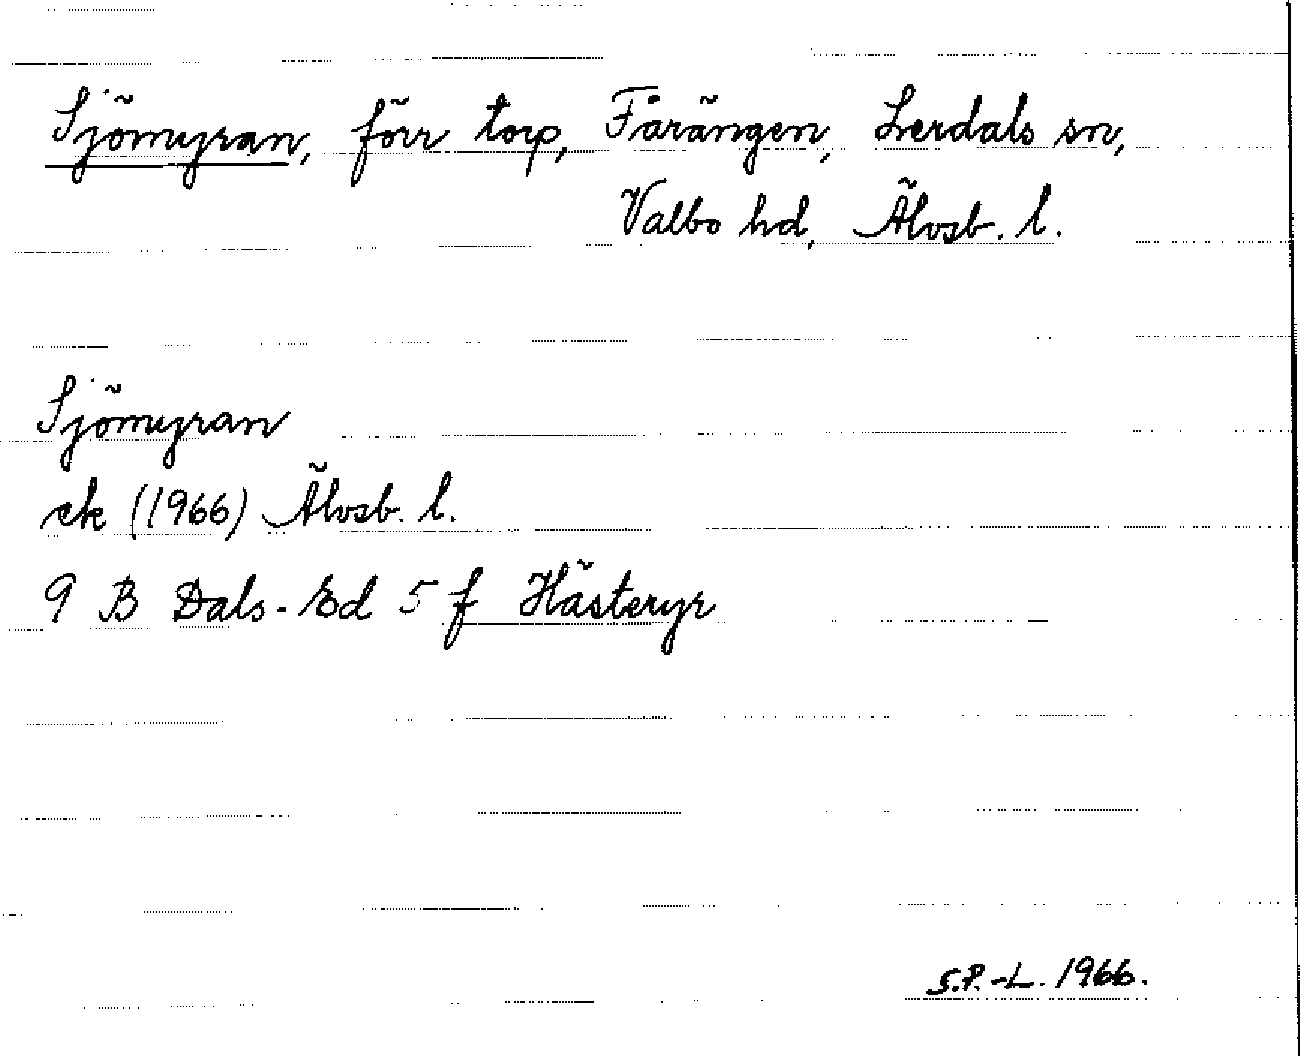 Sjömyran, förr torp, Fårängen, Lerdals sn,
Valbo hd, Älvsb. l.
Sjömyran
ek (1966) Älvsb. l.
9 B Dals-Ed 5 f Hästeryr
S.P.-L. 1966.